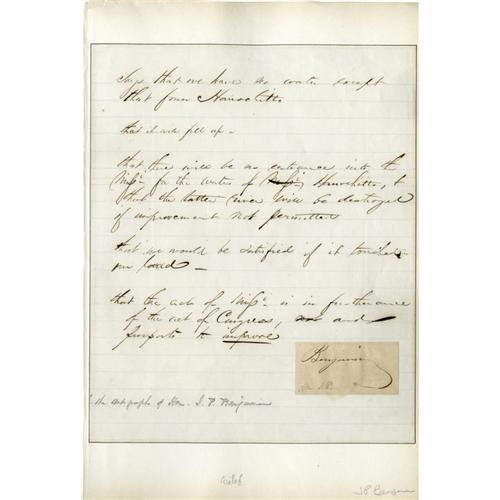 Says that we have no water except
that from Homochitto
that it will fill up –
that there will be no entrance into the
Missi. for the waters of Homochitto, &
that the latter river will be destroyed
if improvement not permitted
that we would be satisfied if it touched
our land –
that the act of Missi. is in furtherance
of the act of Congress, and
purports to improve
Benjamin
the autographs of Hon. J. P. Benjamin
J P Benjamin